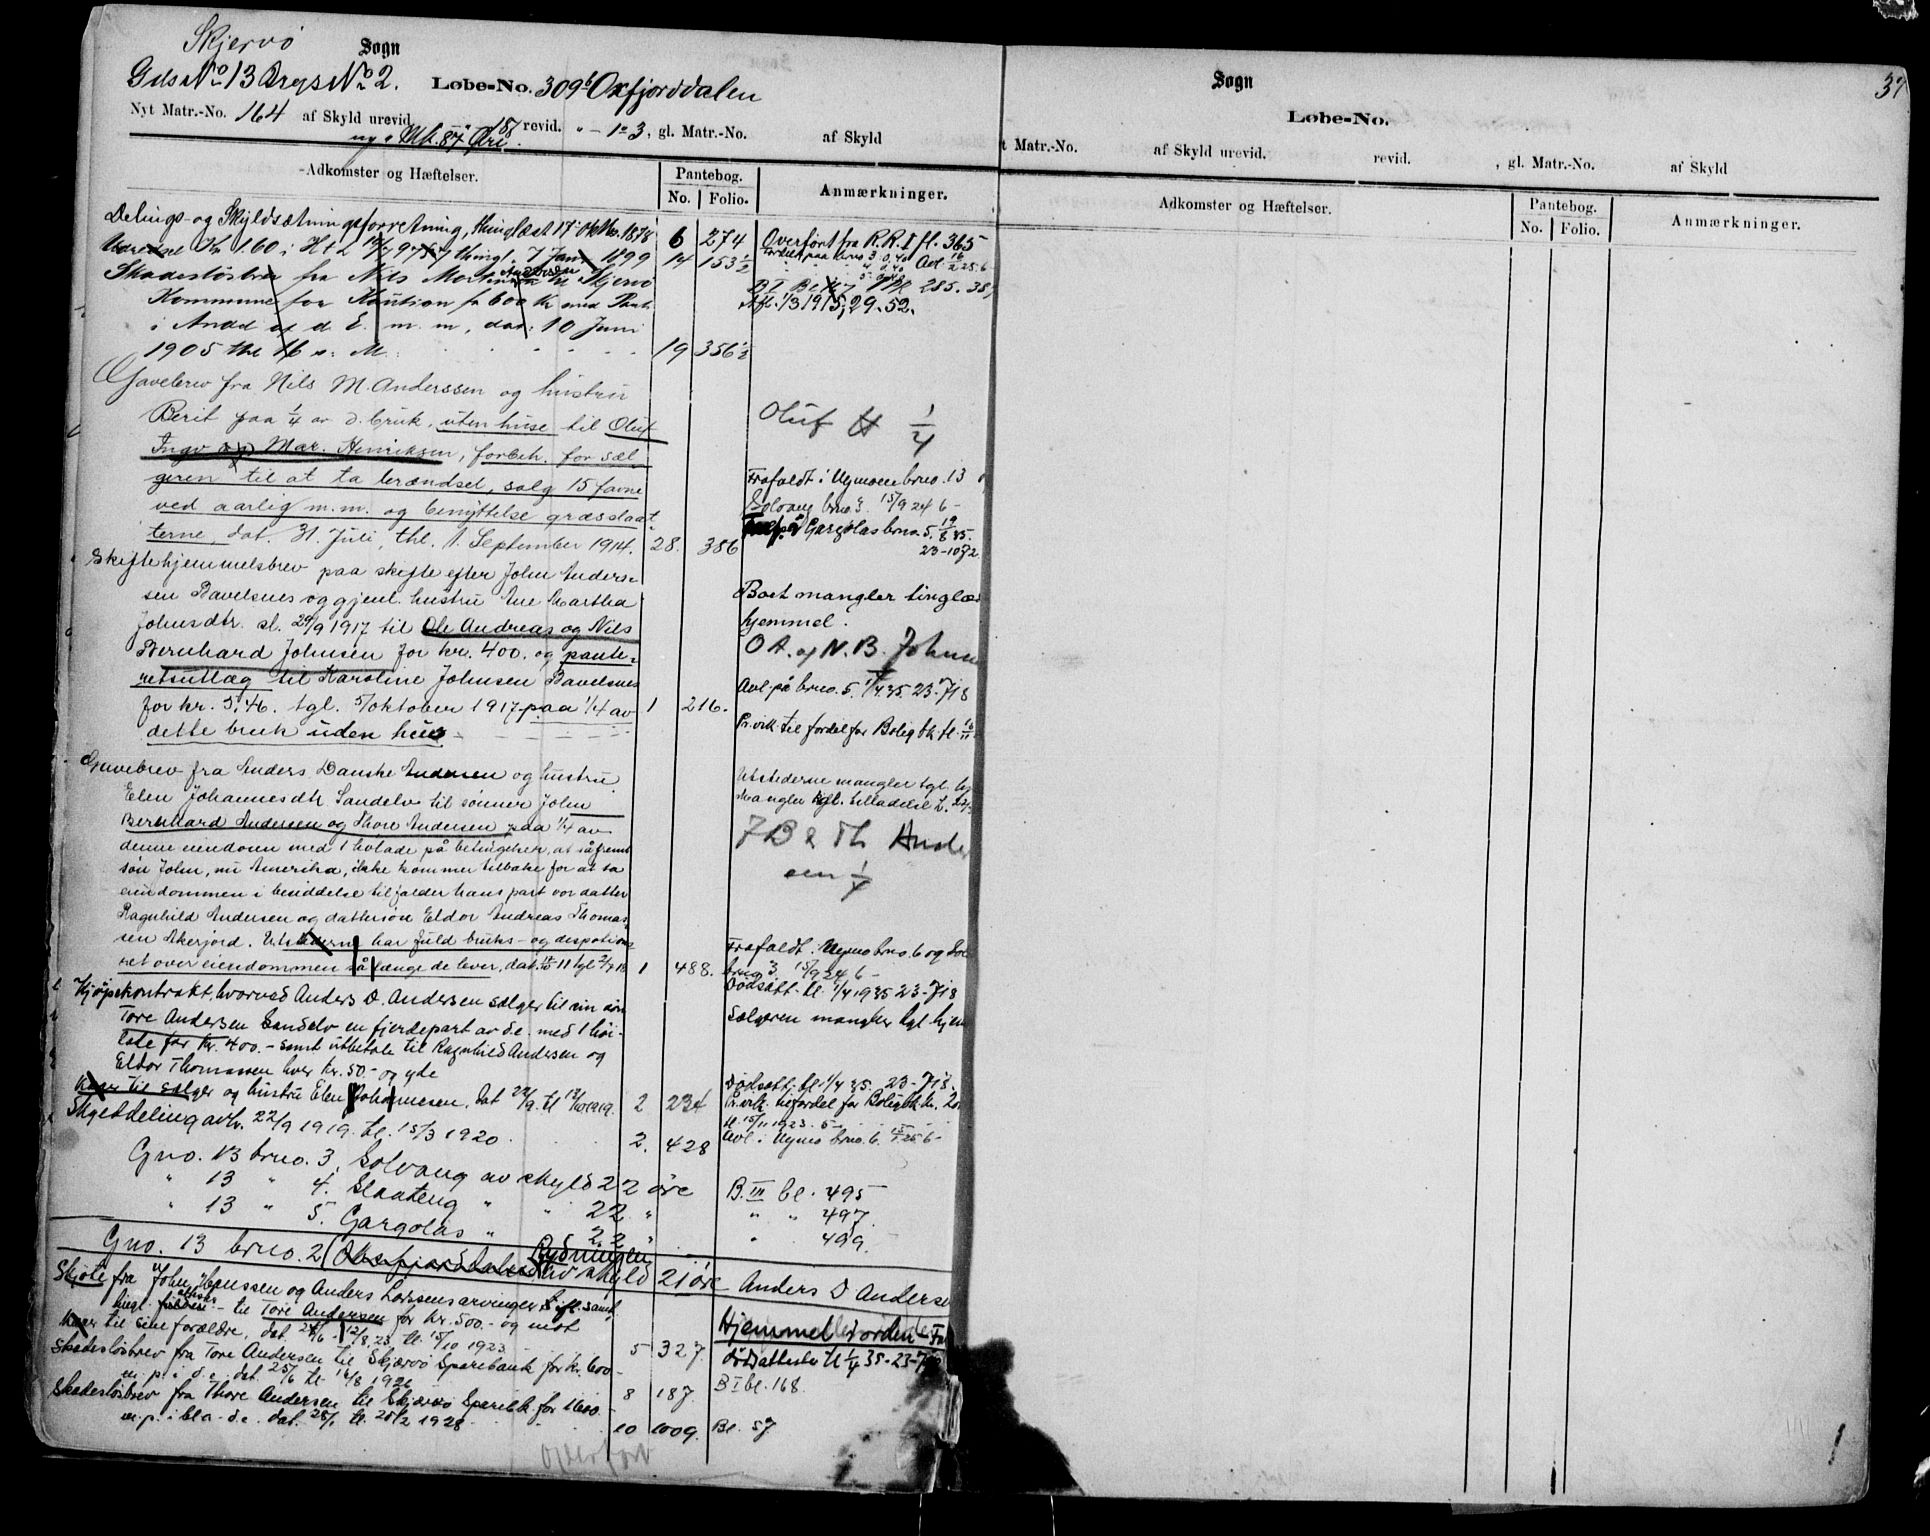 Skjervö Sogn
Gds No 13 Brgs No 2. Løbe-No. 309b Oxfjorddalen
Nyt Matr.-No. 164 af Skyld urevid. revid. " - 1 - 3, gl. Matr.-No. af Skyld
ny " Mk. 87 Øre.
Adkomster og Hæftelser. Pantebog. No. Folio. Anmærkninger.
Delings- og Skyldsætningsforretning, thinglæst 17 Oktbr. 1878 6 274 Overført fra R.R.I fl. 365
Kr 160 i H t L 97 thingl. 7 Jan 1899 14 153½
Skadesløsbrev fra Nils Mortinsen Anderssen til Skjervö
Kommune for Kaution fr 600 Kr med Pant B I 285. 387
i Anad af d. E. m. m, dat: 10 Juni Afl. 1/3 1915, 29. 52.
1905 thl 16 s. M. 19 356½
Gavebrev fra Nils M. Anderssen og hustru
Berit paa ¼ av d. bruk, uten huse til Oluf Oluf H ¼
Ingv og Mar. Henriksen, forbeh. for sæl-
geren til at ta brændsel, salg 15 favne Frafaldt i Nymoen brno. 13
ved aarlig m.m. og benyttelse græsslaat- Solvang brno 3. 15/9 24 6 -
terne, dat. 31. Juli, thl. 1. September 1914. 28. 386 Gargolas brno. 5. 19/8 35.
23-1072
Skiftehjemmelsbrev paa skifte efter John Anders-
sen Bavelsnes og gjenl. hustru Ane Martha Boet mangler tinglæst
Johnsdtr. sl. 29/9 1917 til Ole Andreas og Nils hjemmel.
Bernhard Johnsen for kr. 400. og pante- O A. og N. B. Johnsen
retsutlæg til Karoline Johnsen Bavelsnes Avl. på brno. 5. 1/4 35. 23-718
for kr. 5.46. tgl. 5/oktober 1917 paa ¼ av 1 216.
dette bruk uden hus Pr. vik til fordel for Bolig bk tl.
Gavebrev fra Anders Danske Andersen og hustru Utstederne mangler tgl. hj
Elen Johannesdtr Sandelv til sønner John Mangler tgl. tilladelse t.
Bernhard Andersen og Thore Andersen paa ¼ av J B & Th Ander
denne eiendom med 1 hølade på betingelser, at såfremt sen ¼
søn John, nu Amerika, ikke kommer tilbake for at ta
eiendommen i besiddelse tilfalder hans part vor datter
Ragnhild Andersen og dattersøn Eldor Andreas Thomas-
sen Akerjord. Utstederne har fuld bruks- og despotions- Frafaldt: Nymo brno. 6 og Sol
ret over eiendommen så længe de lever, dat. 1 488. brno 3. 15/9 24 6 -
Dødsatt. tl. 1/4 1935 23-718
Kjøpekontrakt, hvorved Anders D. Andersen sælger til sin søn
Tore Andersen Sandelv en fjerdepart av d.e. med 1 høi- Sælgeren mangler tgl. hjem
lade for kr. 400.- samt utbetale til Ragnhild Andersen og
Eldor Thomassen hver kr. 50.- og yde
Kaar til sælger og hustru Elen Johannesen. Dat 22/9. tl 2 234 Dødsatt. tl 1/4 35. 23-718.
Pr. vik. tilfordel for Bolig bk kr.
tl. 15/11 1923. 5 -
Skylddeling avh. 22/9 1919. tl. 15/3 1920. 2. 428 Avl. i Nymo brno. 6.
Gno. 13 brno. 3. Solvang av skyld 22 øre B. III bl. 495
" 13 " 4. Slaateng " " 22 " " " 497.
" 13 " 5. Gargolas " 22 " " 499.
Gno. 13 brno. 2 (Oksfjorddalen) Rydningen av skyld 21 øre Anders D Anderse
Skjøte fra John Hanssen og Anders Larssens arvinger
til Tore Andersen for kr. 500.- og mot
Kaar til sine forældre. dat. tl. 15/10 1923 5 327. Hjemmel i orden -
dødsattester tl 1/4 35-23-718
Skadesløsbrev fra Tore Andersen til Skjærvø Sparebank for kr. 600 -
m. p. i d. e., dat 25/6 tl. 16/8 1926 8 187. B I bl. 168.
Skadesløsbrev fra Thore Andersen til Skjærvø Sparebk. for 1600 -
m. p. i bl a. d. e. dat. 28/1 tl. 25/2 1928 10 1009. Bl. 57
Overført
37
Sogn
Løbe-No.
t Matr.-No. af Skyld urevid. revid. , gl. Matr.-No. af Skyld
Adkomster og Hæftelser. Pantebog. No. Folio. Anmærkninger.